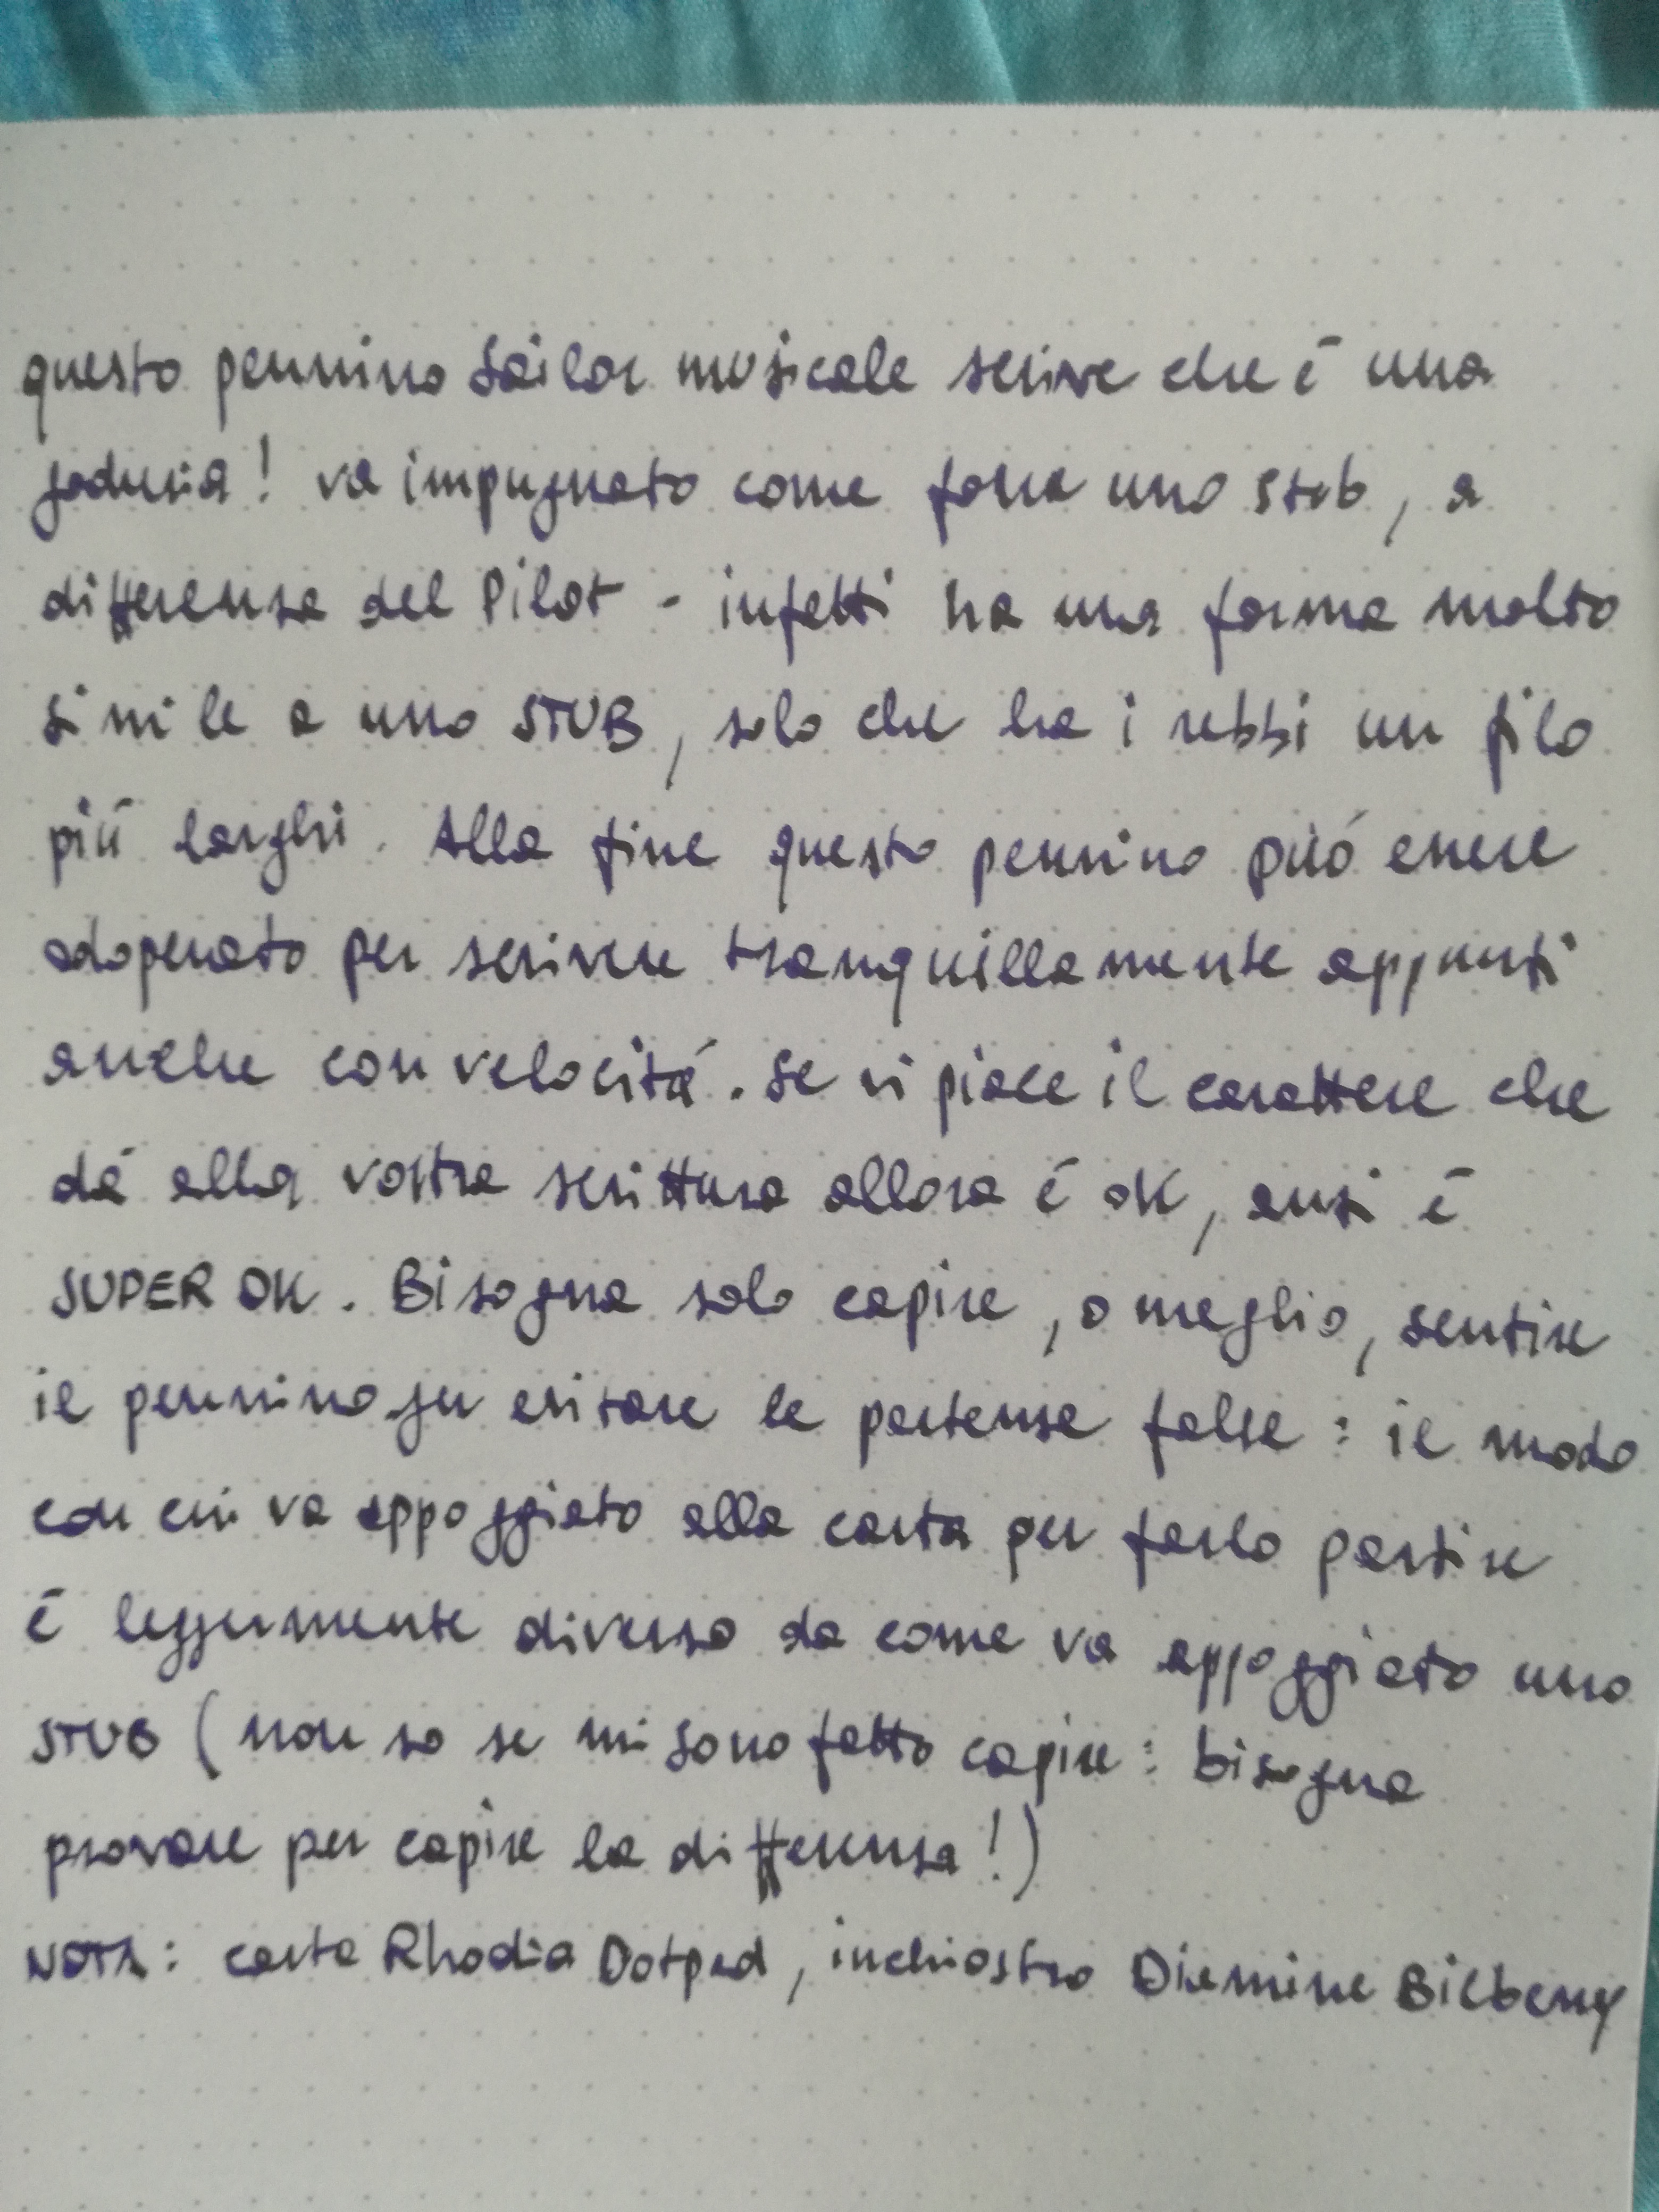 questo pennino Sailor musicale scrive che è una
goduria! va impugnato come fosse uno stub, a
differenza del Pilot - infatti ha una forma molto
simile a uno STUB, solo che ha i rebbi un filo
più larghi. Alla fine questo pennino può essere
adoperato per scrivere tranquillamente appunti
anche con velocità. Se vi piace il carattere che
dà alla vostra scrittura allora è OK, anzi è
SUPER OK. Bisogna solo capire, o meglio, sentire
il pennino per evitare le partenze false: il modo
con cui va appoggiato alla carta per farlo partire
è leggermente diverso da come va appoggiato uno
STUB (non so se mi sono fatto capire: bisogna
provare per capire la differenza!)
NOTA: carta Rhodia Dotpad, inchiostro Diamine Bilberry